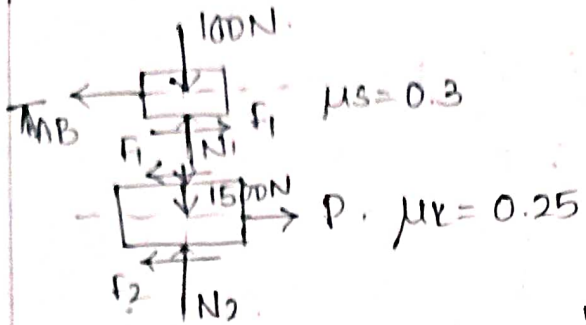 100N.
TAB
μs = 0.3
F1
F1
N1
1500N
P. μk = 0.25
F2
N2